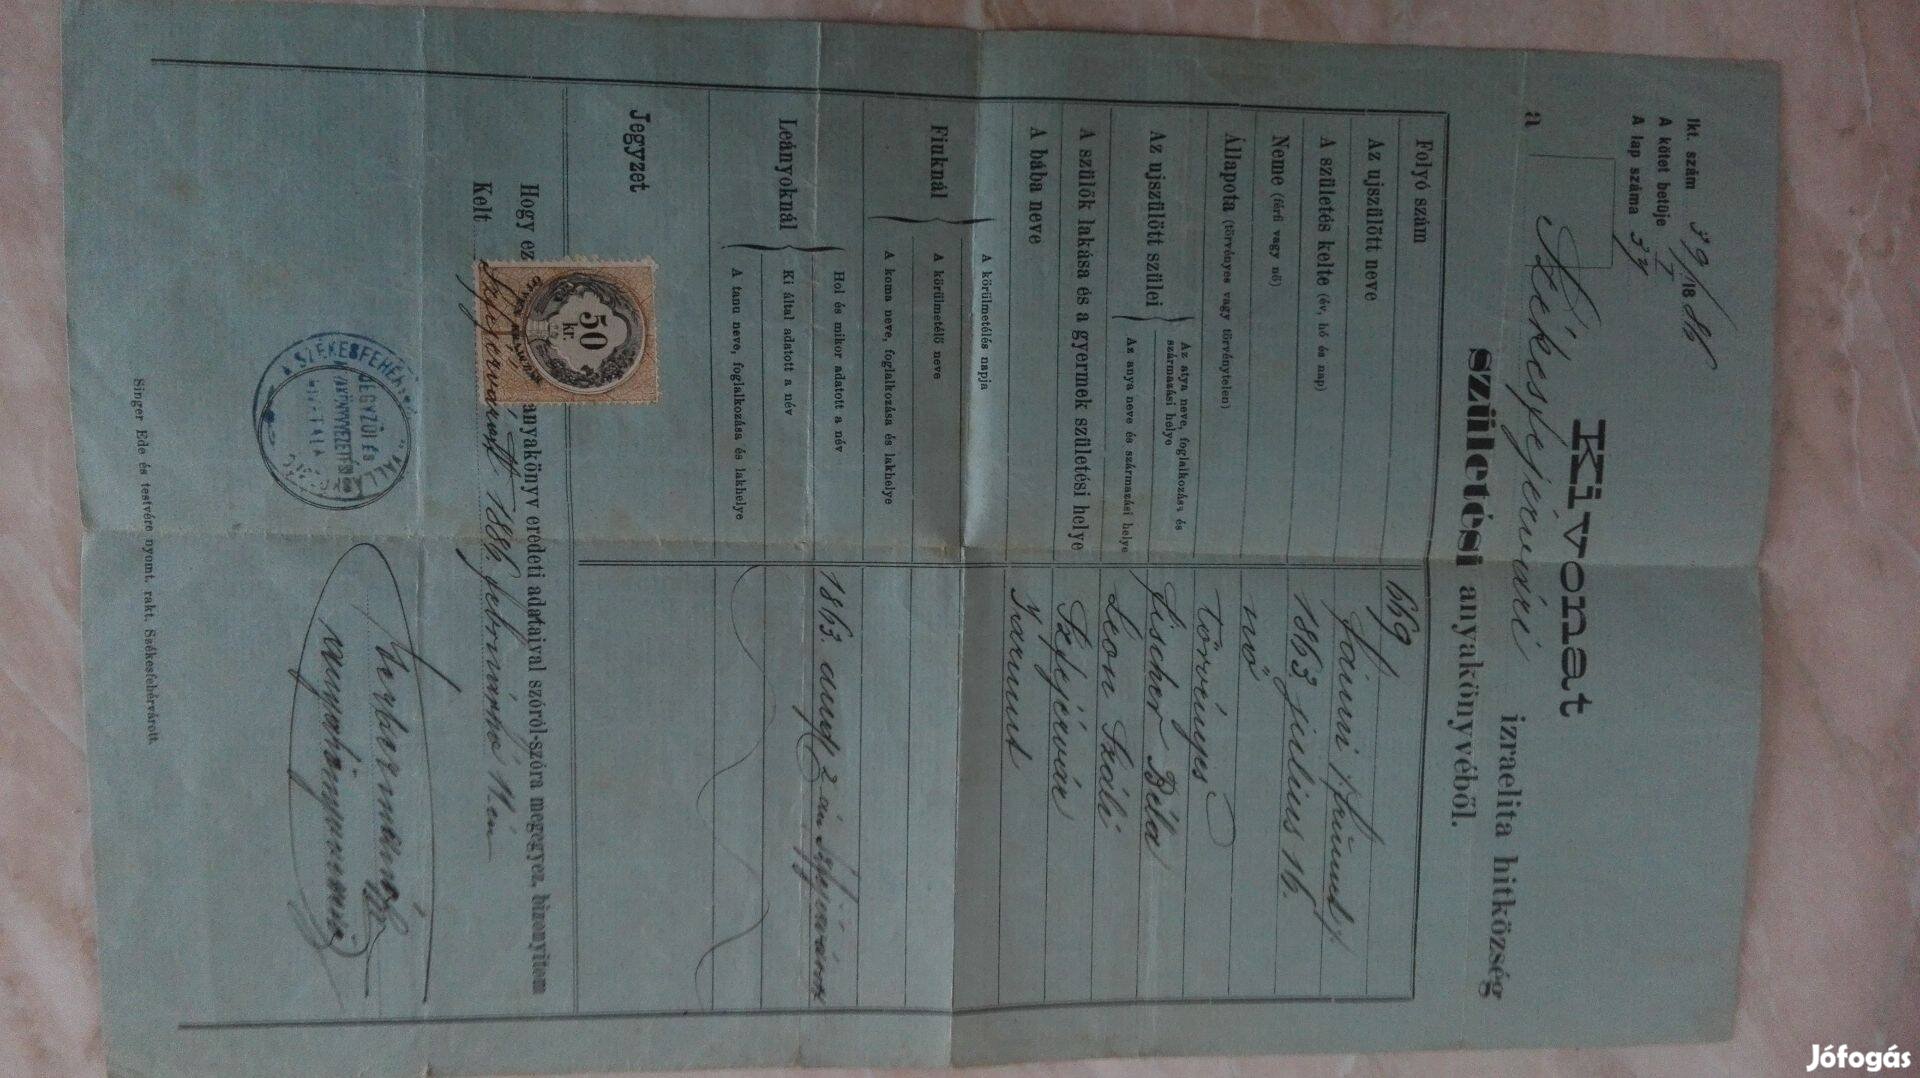 Ikt. szám 39/1886
A kötet betüje I
A lap száma 34
Kivonat
a Székesfejérvári izraelita hitközség
születési anyakönyvéből.
Folyó szám 669
Az ujszülött neve Fáinni
A születés kelte (év, hó és nap) 1863 julius 16.
Neme (férfi vagy nő) nő
Állapota (törvényes vagy törvénytelen) törvényes
Az ujszülött szülei
Az atya neve, foglalkozása és származási helye Fischer Béla
Az anya neve és származási helye Leon Száli
A szülők lakása és a gyermek születési helye Szfejérvár
A bába neve
Fiuknál
A körülmetélés napja
A körülmetélő neve
A koma neve, foglalkozása és lakhelye
Leányoknál
Hol és mikor adatott a név 1863. aug 2-án Szfejérvárott
Ki által adatott a név
A tanu neve, foglalkozása és lakhelye
Jegyzet
50
kr.
Hogy ez anyakönyv eredeti adataival szóról-szóra megegyez, bizonyitom
Kelt Szfejérvárott 1886. februárhó 11-én
anyakönyvvezető
Singer Ede és testvére nyomt. rakt. Székesfehérvárott.
Jófogás